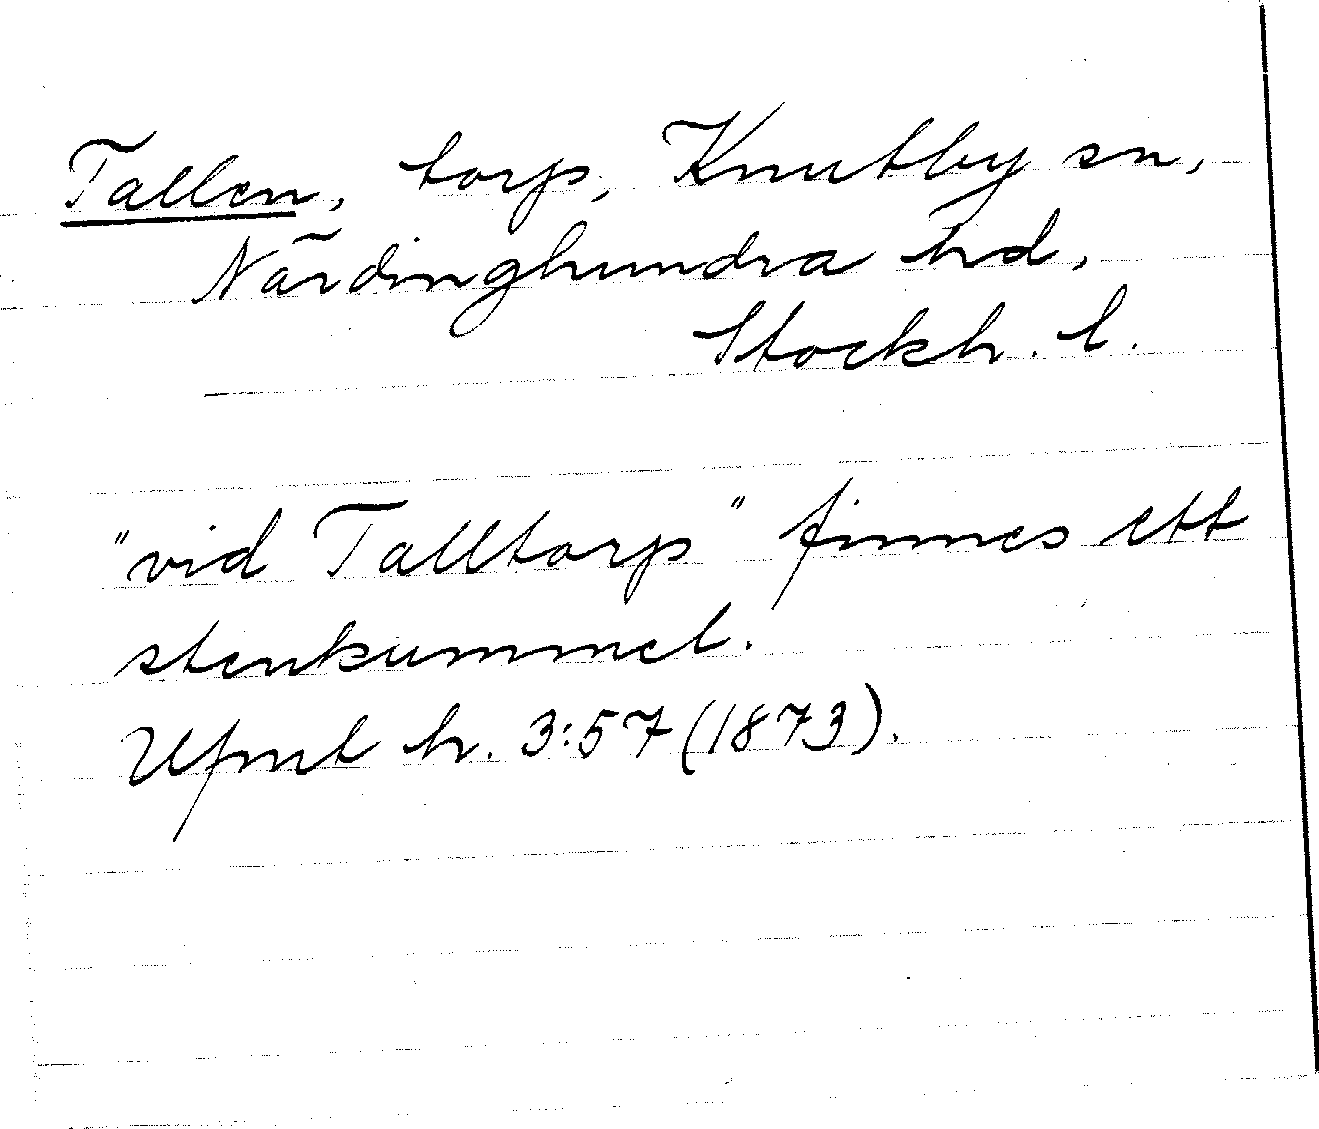 Tallen, torp, Knutby sn,
Närdinghundra hd,
Stockh. l.
"vid Talltorp" finnes ett
stenkummel.
Ufmt h. 3:57 (1873).